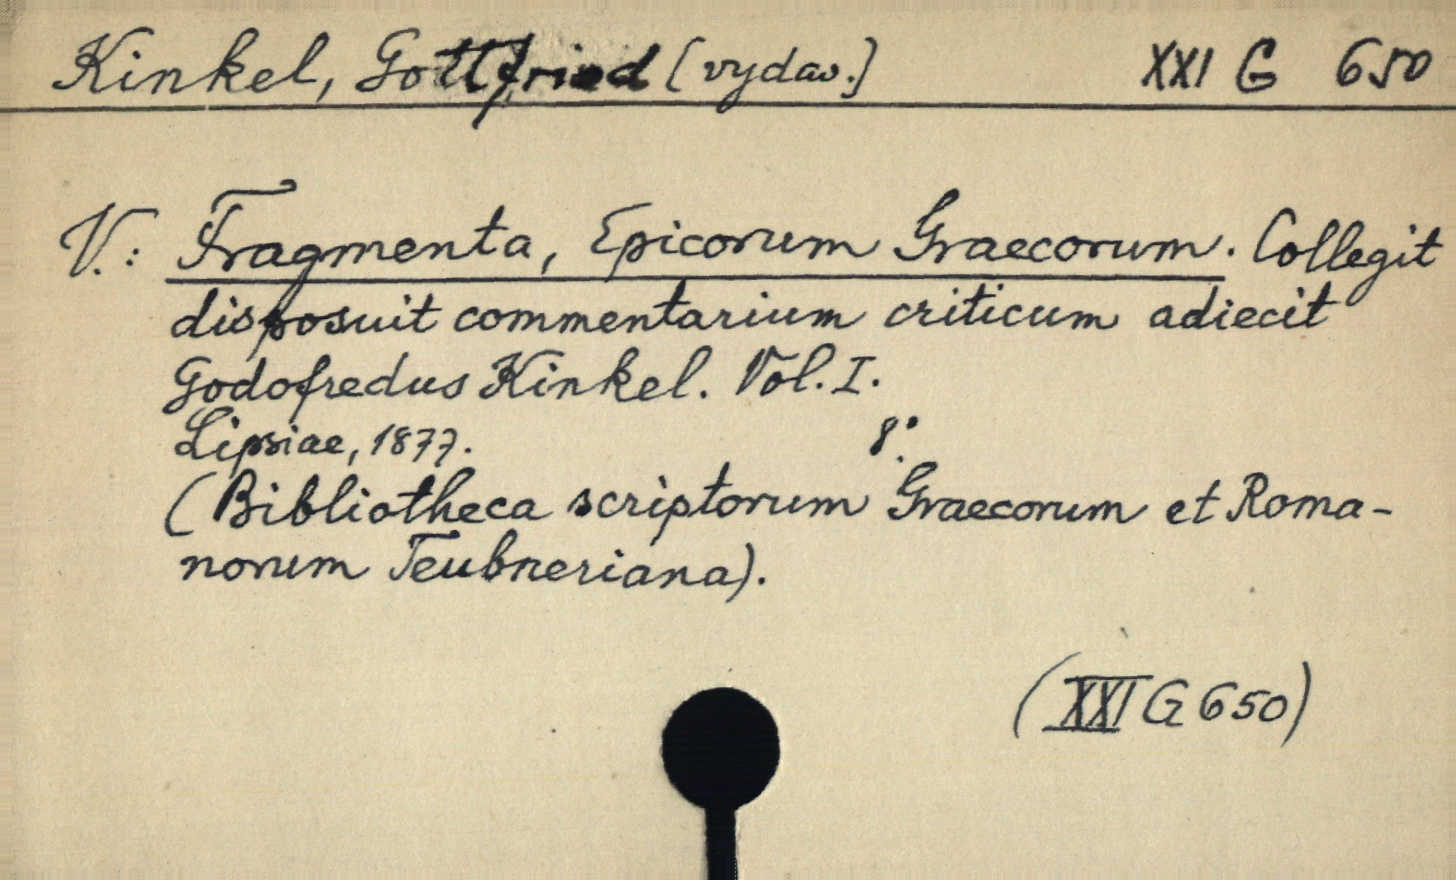 Kinkel, Gottfried [vydav.] XXI G 650
V.: Fragmenta, Epicorum Graecorum. Collegit
disposuit commentarium criticum adiecit
Godofredus Kinkel. Vol. I.
Lipsiae, 1877. 8°.
(Bibliotheca scriptorum Graecorum et Roma-
norum Teubneriana).
(XXI G 650)